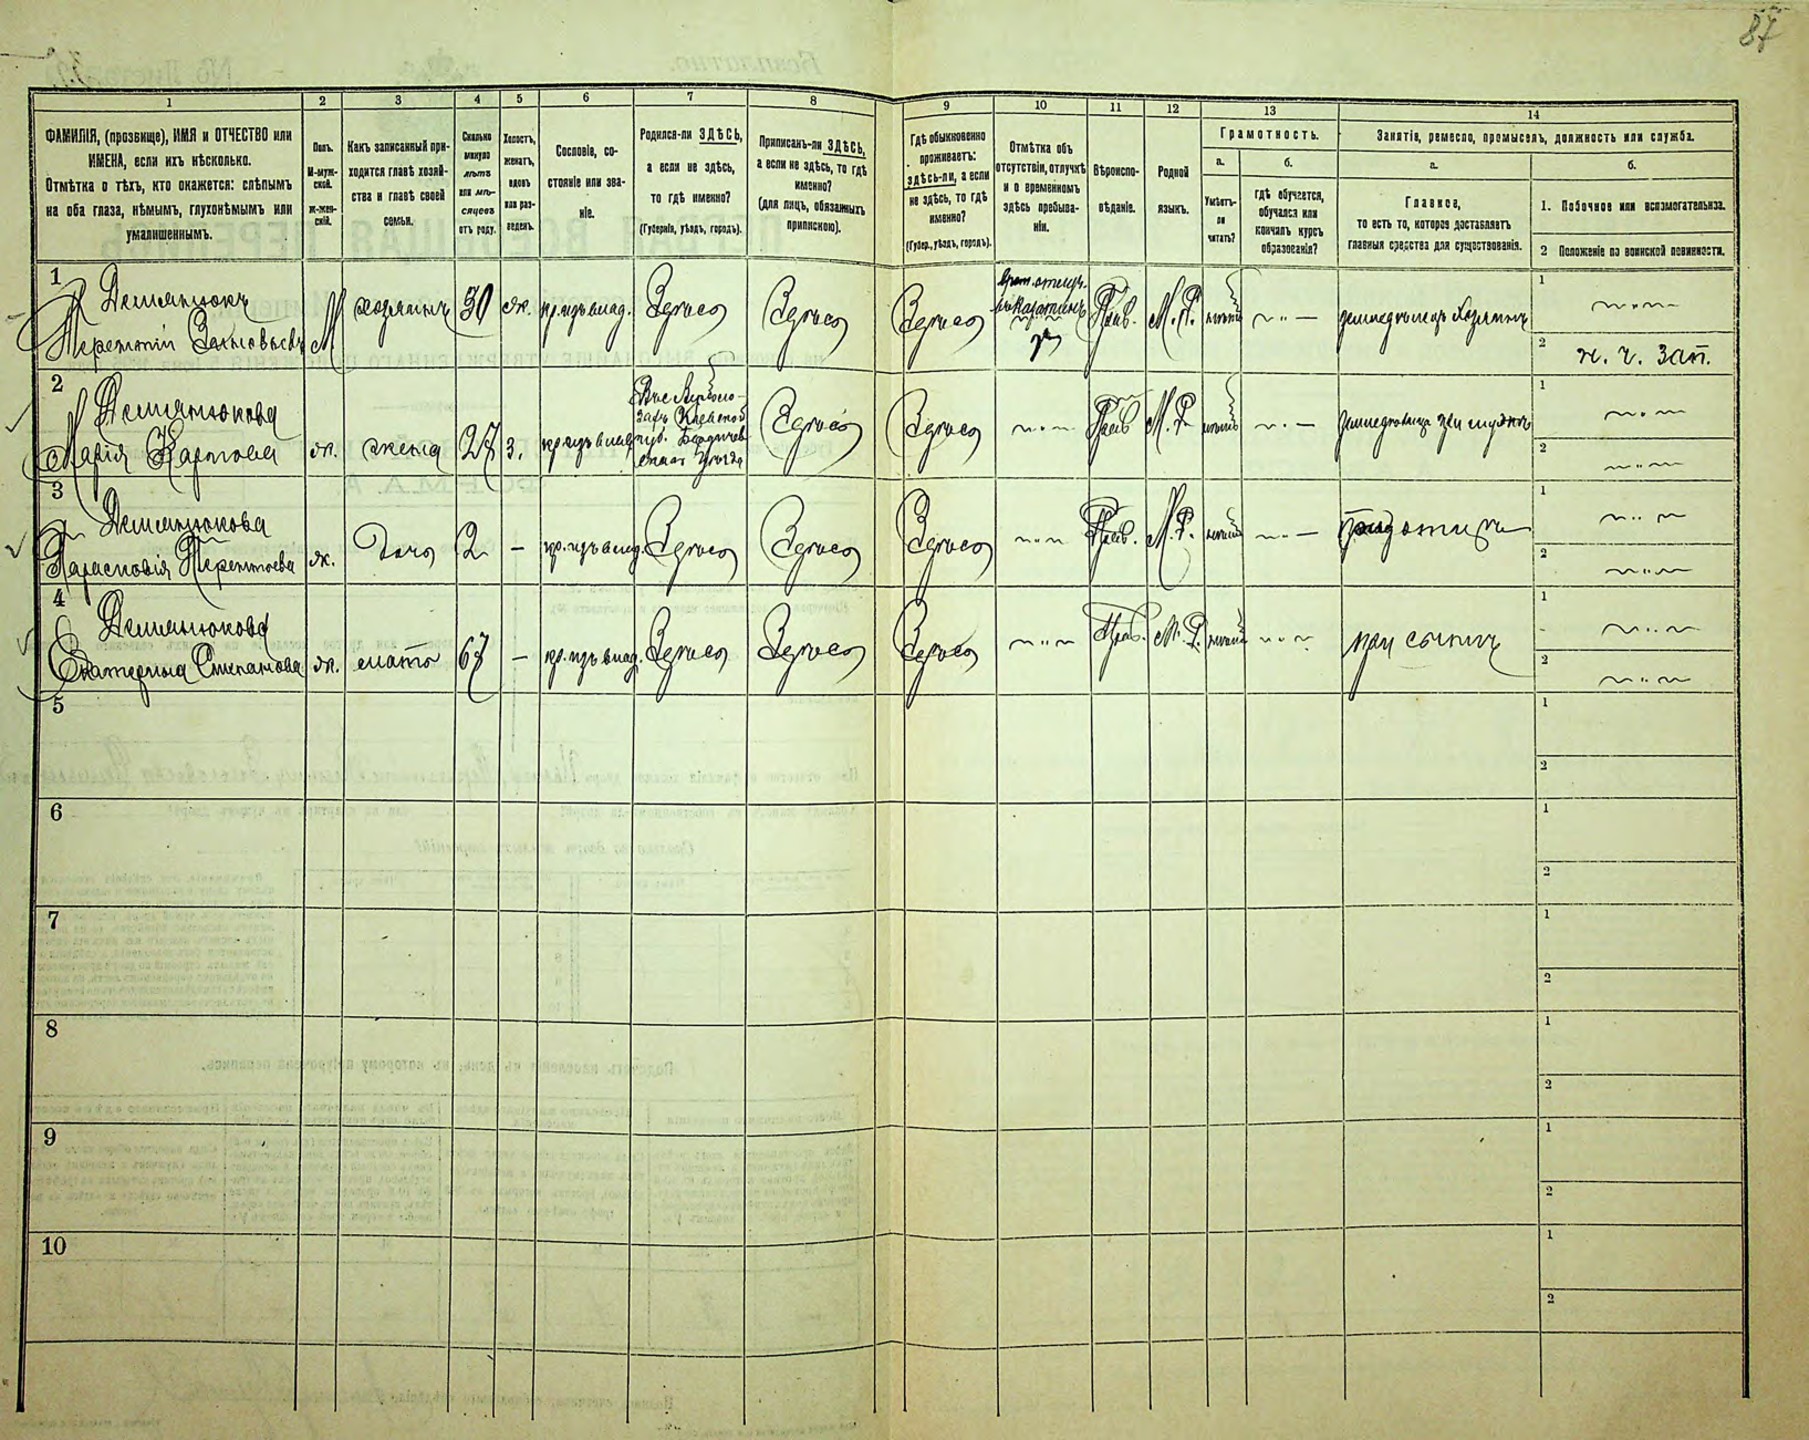 87
1
2
3
4
5
6
7
8
9
10
11
12
13
14
ФАМИЛІЯ, (прозвище), ИМЯ и ОТЧЕСТВО или
ИМЕНА, если ихъ нѣсколько.
Отмѣтка о тѣхъ, кто окажется: слѣпымъ
на оба глаза, нѣмымъ, глухонѣмымъ или
умалишеннымъ.
Полъ.
М-муж-
ской.
ж-жен-
скій.
Какъ записанный при-
ходится главѣ хозяй-
ства и главѣ своей
семьи.
Сколько
минуло
лѣтъ
или мѣ-
сяцевъ
отъ роду.
Холостъ,
женатъ,
вдовъ
или раз-
веденъ.
Сословіе, со-
стояніе или зва-
ніе.
Родился-ли ЗДѢСЬ,
а если не здѣсь,
то гдѣ именно?
(Губернія, уѣздъ, городъ).
Приписанъ-ли ЗДѢСЬ,
а если не здѣсь, то гдѣ
именно?
(для лицъ, обязанныхъ
припискою).
Гдѣ обыкновенно
проживаетъ:
здѣсь-ли, а если
не здѣсь, то гдѣ
именно?
(Губер., уѣздъ, городъ).
Отмѣтка объ
отсутствіи, отлучкѣ
и о временномъ
здѣсь пребыва-
ніи.
Вѣроиспо-
вѣданіе.
Родной
языкъ.
Грамотность.
а.
Умѣетъ-
ли
читать?
б.
Гдѣ обучается,
обучался или
кончилъ курсъ
образованія?
Занятіе, ремесло, промыселъ, должность или служба.
а.
Главное,
то есть то, которое доставляетъ
главныя средства для существованія.
б.
1. Побочное или вспомогательное.
2 Положеніе по воинской повинности.
1
Демянюкъ
Терентій
М
хозяинъ
30
ж.
кр. изъ влад.
Здѣсь
Здѣсь
Здѣсь
Прав.
М. Р.
земледѣлецъ хозяинъ
1
2
н. ч. зап.
2
Демянюкова
Марія Карпова
ж.
жена
27
з.
кр. изъ влад.
Кіевской
губ. Бердичев
Здѣсь
Здѣсь
Прав
М. Р.
при мужѣ
1
2
3
Демянюкова
Парасковія Терентіева
ж.
дочь
2
—
кр. изъ влад.
Здѣсь
Здѣсь
Здѣсь
Прав.
М. Р.
при отцѣ
1
2
4
Демянюкова
Екатерина Степанова
ж.
мать
67
—
кр. изъ влад.
Здѣсь
Здѣсь
Здѣсь
Прав.
М. Р.
при сынѣ
1
2
5
1
2
6
1
2
7
1
2
8
1
2
9
1
2
10
1
2